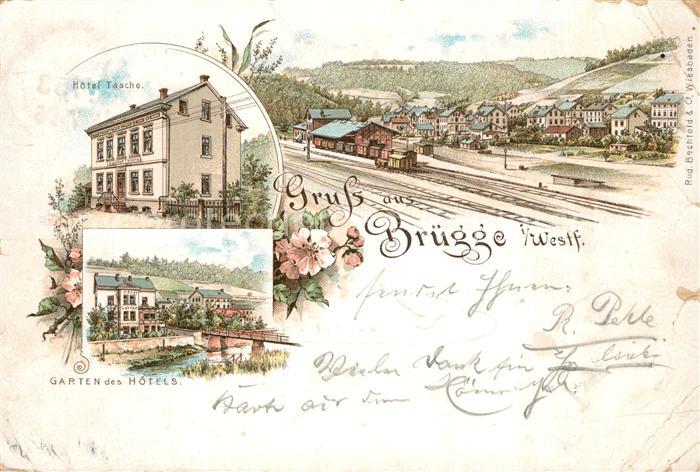 Hôtel Tasche.
Gruß aus
Brügge i/Westf.
GARTEN des HÔTELS.
Rud. Bechtold & Co, Wiesbaden.
sendet Ihnen
R.
Vielen Dank für
Karte aus dem